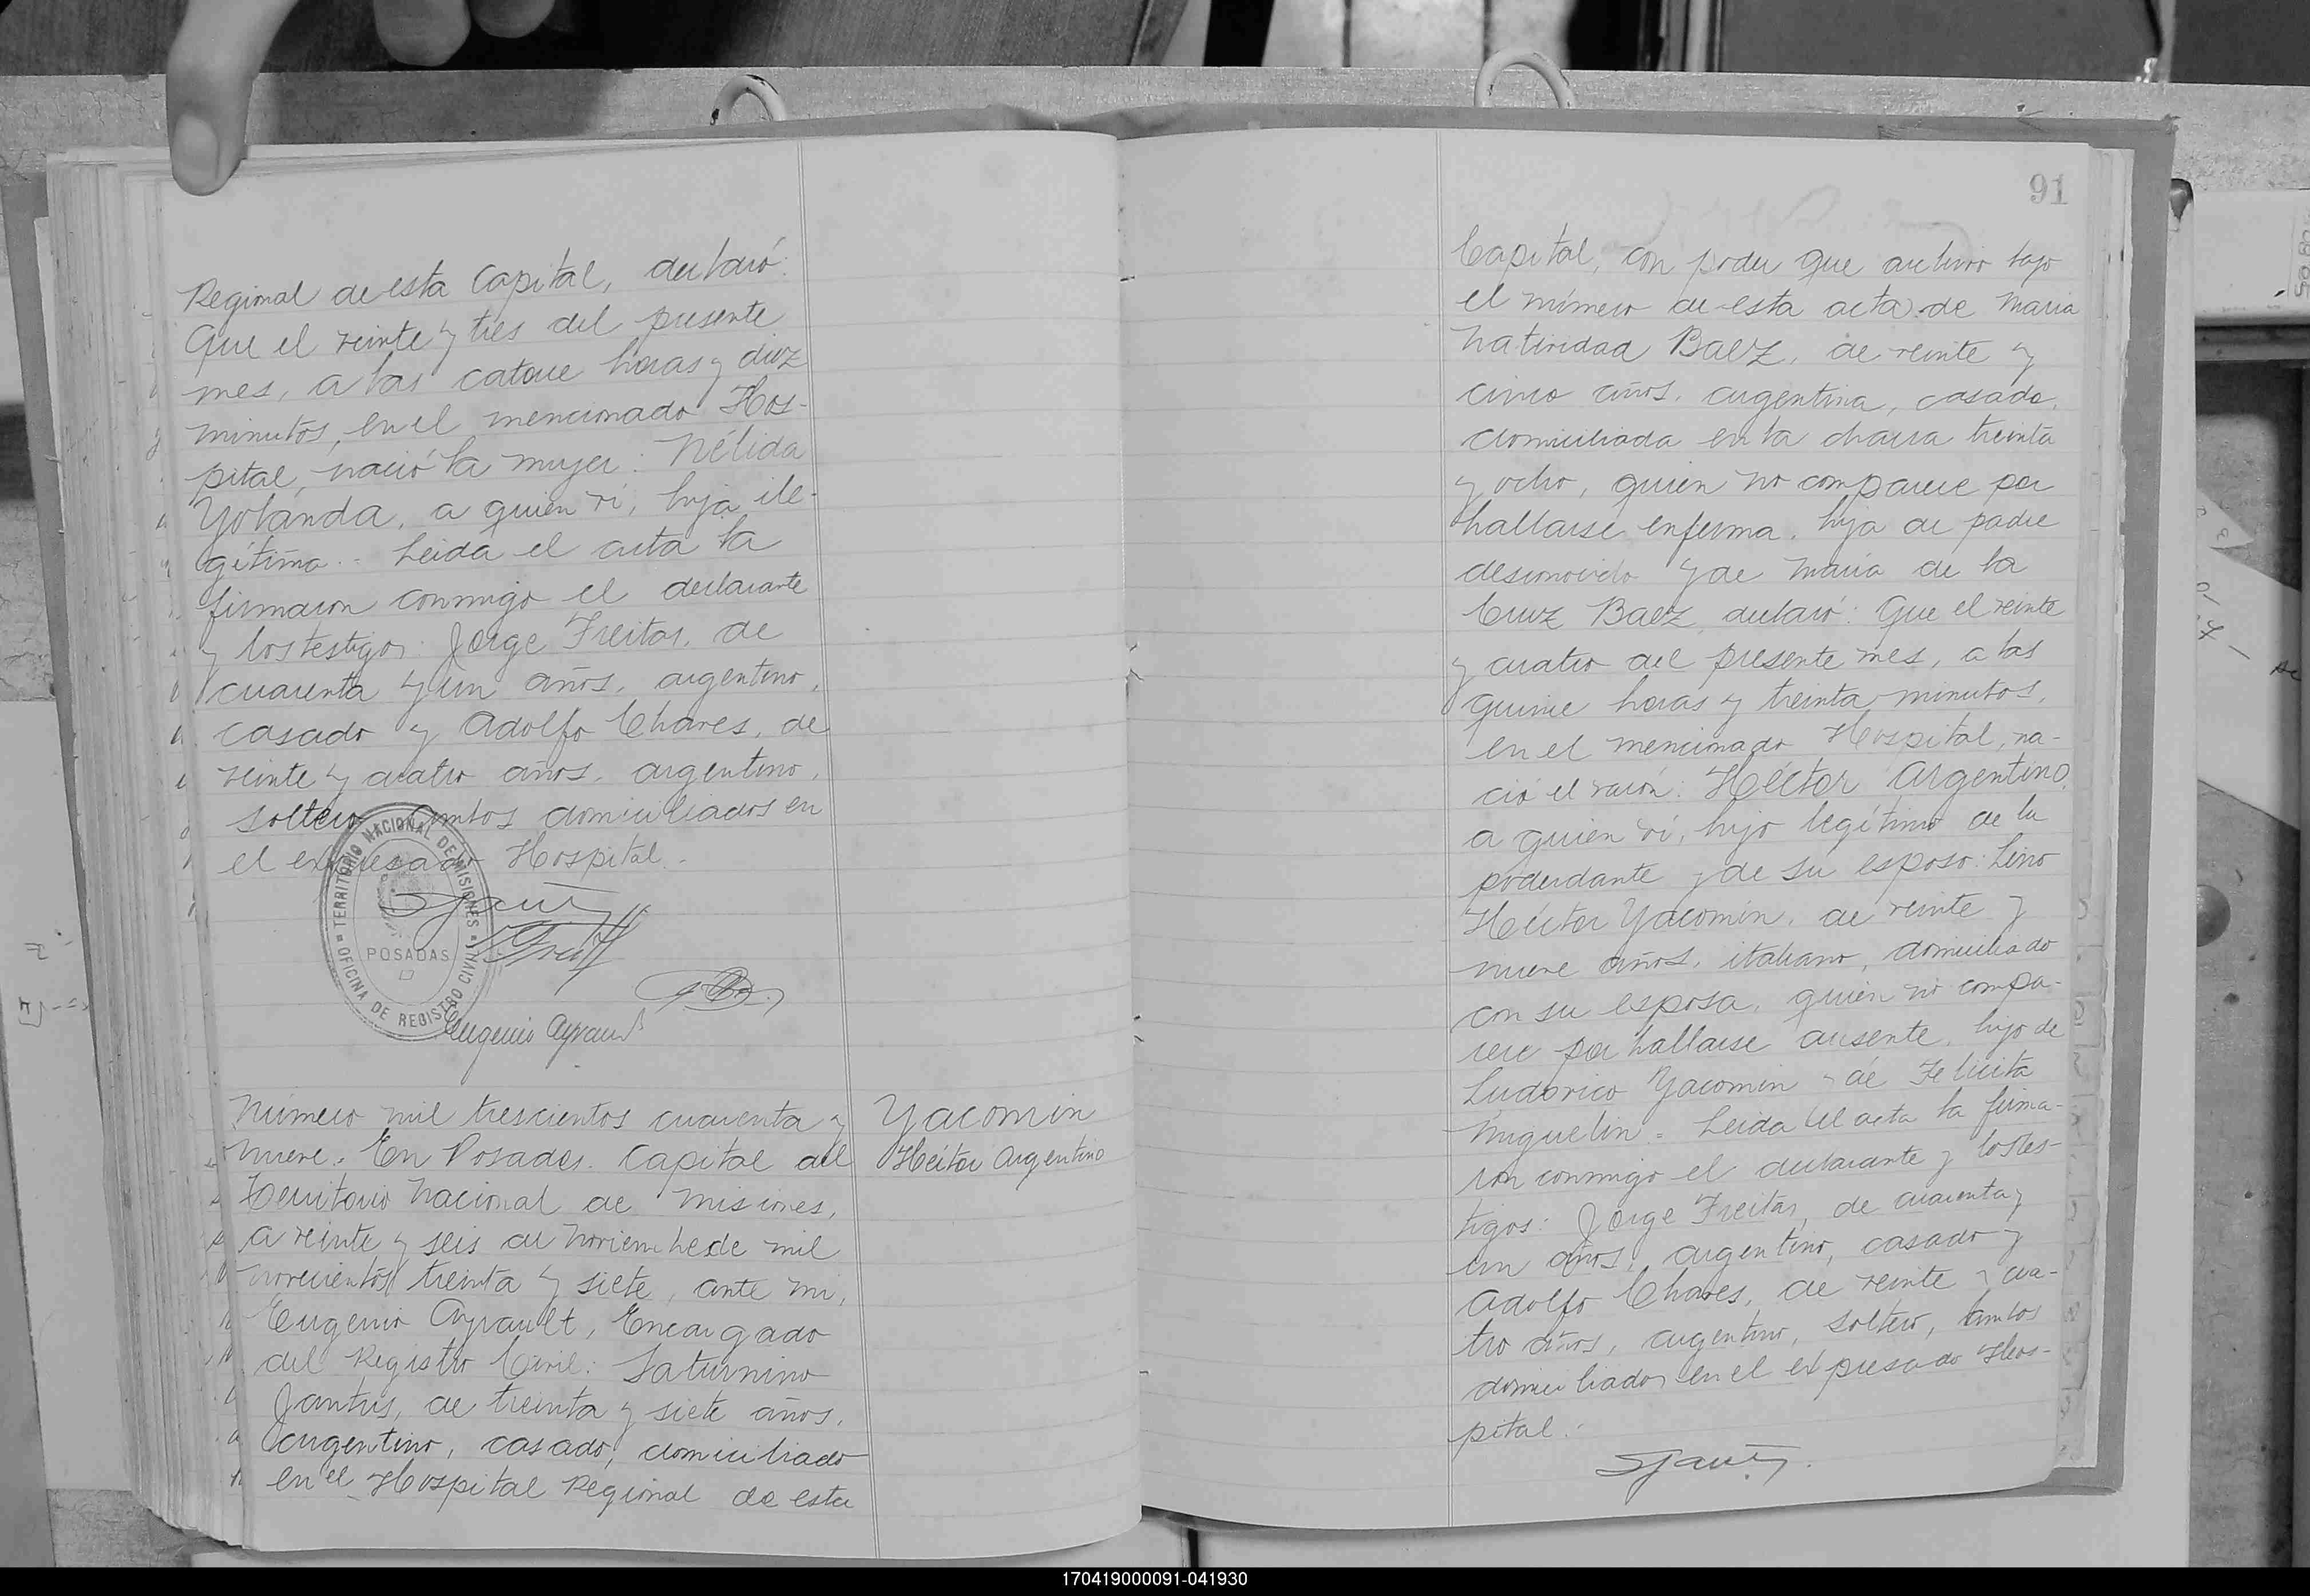 Regional de esta Capital, declaró:
Que el veinte y tres del presente
mes, a las catorce horas y diez
minutos, en el mencionado Hos-
pital, nació la mujer: Nélida
Yolanda, a quien ví, hija ile-
gítima.- Leida el acta la
firmaron conmigo el declarante
y los testigos: Jorge Freitas, de
cuarenta y un años, argentino,
casado y Adolfo Chaves, de
veinte y cuatro años, argentino,
soltero, ambos domiciliados en
el expresado Hospital.-
TERRITORIO NACIONAL DE MISIONES
POSADAS
OFICINA DE REGISTRO CIVIL
Eugenio Ayrault
Número mil trescientos cuarenta y
nueve.- En Posadas, Capital del
Territorio Nacional de Misiones,
a veinte y seis de Noviembre de mil
novecientos treinta y siete, ante mi,
Eugenio Ayrault, Encargado
del Registro Civil: Saturnino
Jantus, de treinta y siete años,
argentino, casado, domiciliado
en el Hospital Regional de esta
Yacomin
Héctor Argentino
91
Capital, con poder que archivo bajo
el número de esta acta de Maria
Natividad Baez, de veinte y
cinco años, argentina, casada,
domiciliada en la chacra treinta
y ocho, quien no comparece por
hallarse enferma, hija de padre
desconocido y de Maria de la
Cruz Baez, declaró: Que el veinte
y cuatro del presente mes, a las
quince horas y treinta minutos,
en el mencionado Hospital, na-
ció el varón: Héctor Argentino,
a quien ví, hijo legítimo de la
poderdante y de su esposo: Lino
Héctor Yacomin, de veinte y
nueve años, italiano, domiciliado
con su esposa, quien no compa-
rece por hallarse ausente, hijo de
Ludovico Yacomin y de Felicita
Miguelin.- Leida el acta la firma-
ron conmigo el declarante y los tes-
tigos: Jorge Freitas, de cuarenta y
un años, argentino, casado y
Adolfo Chaves, de veinte y cua-
tro años, argentino, soltero, ambos
domiciliados en el expresado Hos-
pital.-
170419000091-041930